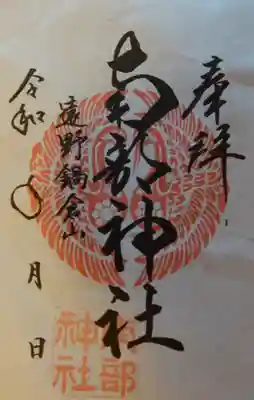 奉拝
南部神社
遠野鍋倉山
令和 年 月 日
南部神社